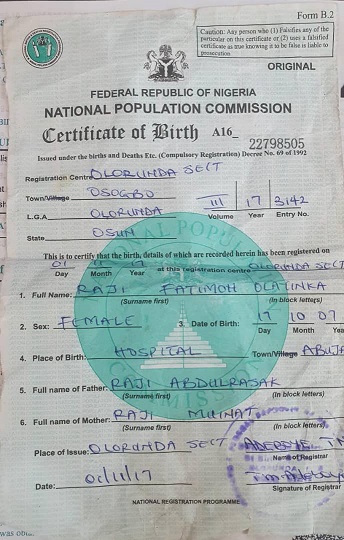 Form B.2
Caution: Any person who (1) Falsifies any of the
particular on this certificate or (2) uses a falsified
certificate as true knowing it to be false is liable to
prosecution
ORIGINAL
FEDERAL REPUBLIC OF NIGERIA
NATIONAL POPULATION COMMISSION
Certificate of Birth A16_ 22798505
Issued under the births and Deaths Etc. (Compulsory Registration) Decree No. 69 of 1992
Registration Centre OLORUNDA SECT
Town/Village OSOGBO III 17 3142
L.G.A OLORUNDA Volume Year Entry No.
State OSUN
This is to certify that the birth, details of which are recorded herein has been registered on
01 11 17 at this registration centre OLORUNDA SECT
Day Month Year
1. Full Name: RAJI FATIMOH OLAYINKA
(Surname first) (In block letters)
2. Sex: FEMALE 3. Date of Birth: 17 10 07
Day Month Year
4. Place of Birth: HOSPITAL Town/Village ABUJA
5. Full name of Father: RAJI ABDULRASAK
(Surname first) (In block letters)
6. Full name of Mother: RAJI MUINAT
(Surname first) (In block letters)
Place of Issue: OLORUNDA SECT ADEBOYE T.M
Name of Registrar
Date: 01/11/17
Signature of Registrar
NATIONAL REGISTRATION PROGRAMME